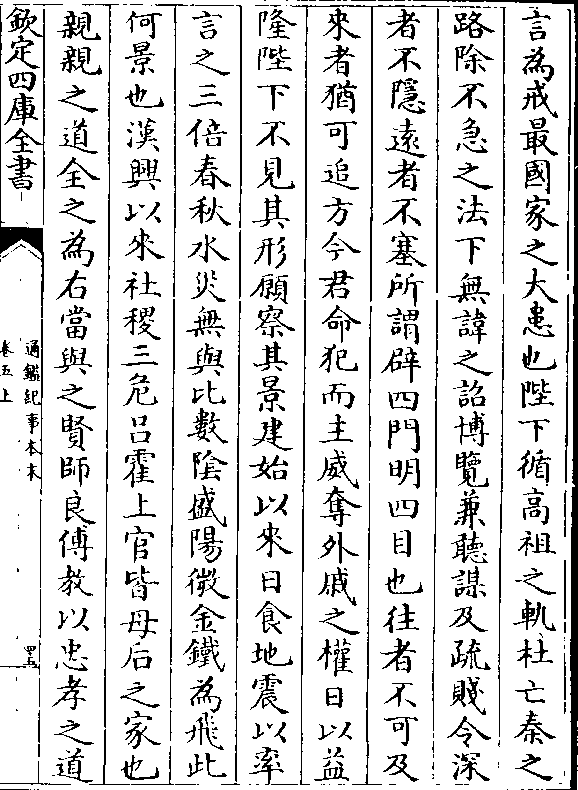 言為戒最國家之大患也陛下循高祖之軌杜亡秦之
路除不急之法下無諱之詔博覽兼聽謀及疏賤令深
者不隱遠者不塞所謂辟四門明四目也往者不可及
來者猶可追方今君命犯而主威奪外戚之權日以益
隆陛下不見其形願察其景建始以來日食地震以率
言之三倍春秋水災無與比數陰盛陽微金鐵為飛此
何景也漢興以來社稷三危呂霍上官皆母后之家也
親親之道全之為右當與之賢師良傅教以忠孝之道
欽定四庫全書
通鑑紀事本末
卷五上
四五